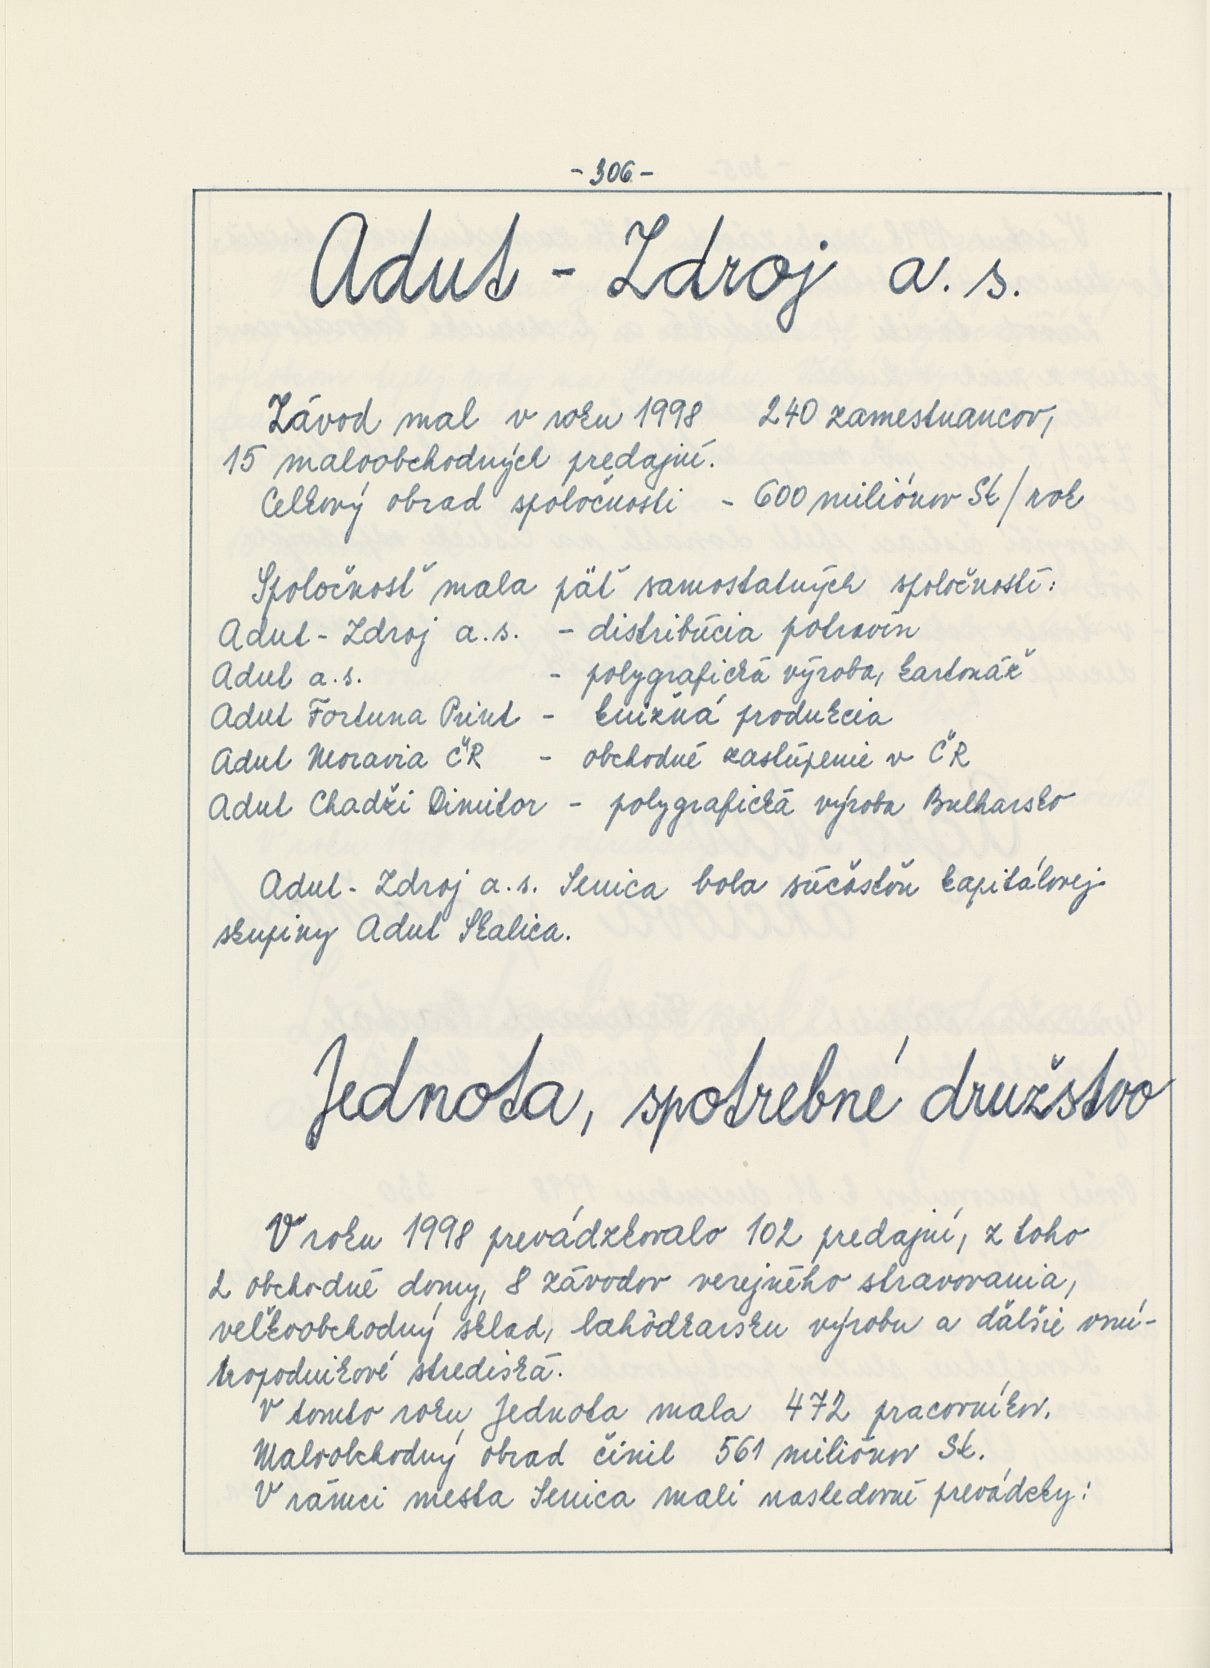 - 306 -
Adut - Zdroj a. s.
Závod mal v roku 1998 240 zamestnancov,
15 maloobchodných predajní.
Celkový obrad spoločnosti - 600 miliónov Sk/rok
Spoločnosť mala päť samostatných spoločností:
Adut - Zdroj a.s. - distribúcia potravín
Adut a.s. - polygrafická výroba, kartonáž
Adut Fortuna Print - knižná produkcia
Adut Moravia ČR - obchodné zastúpenie v ČR
Adut Chadži Dimitor - polygrafická výroba Bulharsko
Adut - Zdroj a.s. Senica bola súčasťou kapitálovej
skupiny Adut Skalica.
Jednota, spotrebné družstvo
V roku 1998 prevádzkovalo 102 predajní, z toho
2 obchodné domy, 8 závodov verejného stravovania,
veľkoobchodný sklad, lahôdkarsku výrobu a ďalšie vnú-
tropodnikové strediská.
V tomto roku Jednota mala 472 pracovníkov.
Maloobchodný obrad činil 561 miliónov Sk.
V rámci mesta Senica mali nasledovné prevádzky: